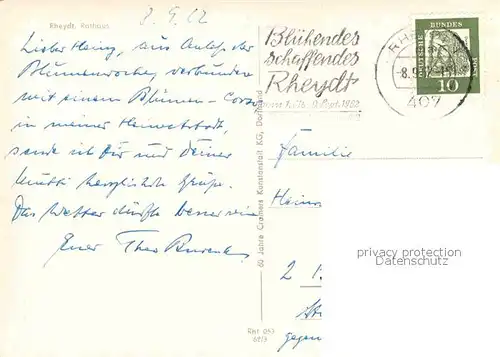 8.9.62
Rheydt, Rathaus
Lieber Heinz, aus Anlaß der
Blumenwoche, verbunden
mit einem Blumen-Corso
in meiner Heimatstadt,
sende ich Dir und Deiner
Mutti herzliche Grüße.
Das Wetter dürfte besser sein
Euer Theo
60 Jahre Cramers Kunstanstalt KG, Dortmund
Rht 050
Blühendes
schaffendes
Rheydt
RHE
-8.9.
407
DEUTSCHE
BUNDES
10
Familie
Heinr
2
gegen
privacy protection
Datenschutz